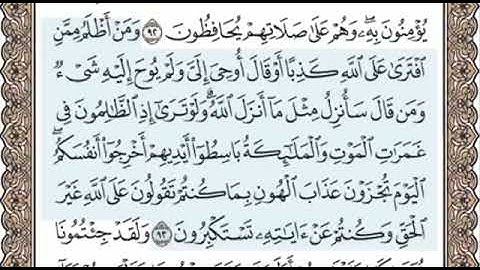 يُؤْمِنُونَ بِهِۦۖ وَهُمْ عَلَىٰ صَلَاتِهِمْ يُحَافِظُونَ ٩٢ وَمَنْ أَظْلَمُ مِمَّنِ
ٱفْتَرَىٰ عَلَى ٱللَّهِ كَذِبًا أَوْ قَالَ أُوحِىَ إِلَىَّ وَلَمْ يُوحَ إِلَيْهِ شَىْءٌ
وَمَن قَالَ سَأُنزِلُ مِثْلَ مَآ أَنزَلَ ٱللَّهُۗ وَلَوْ تَرَىٰٓ إِذِ ٱلظَّٰلِمُونَ فِى
غَمَرَٰتِ ٱلْمَوْتِ وَٱلْمَلَٰٓئِكَةُ بَاسِطُوٓا۟ أَيْدِيهِمْ أَخْرِجُوٓا۟ أَنفُسَكُمُۖ
ٱلْيَوْمَ تُجْزَوْنَ عَذَابَ ٱلْهُونِ بِمَا كُنتُمْ تَقُولُونَ عَلَى ٱللَّهِ غَيْرَ
ٱلْحَقِّ وَكُنتُمْ عَنْ ءَايَٰتِهِۦ تَسْتَكْبِرُونَ ٩٣ وَلَقَدْ جِئْتُمُونَا